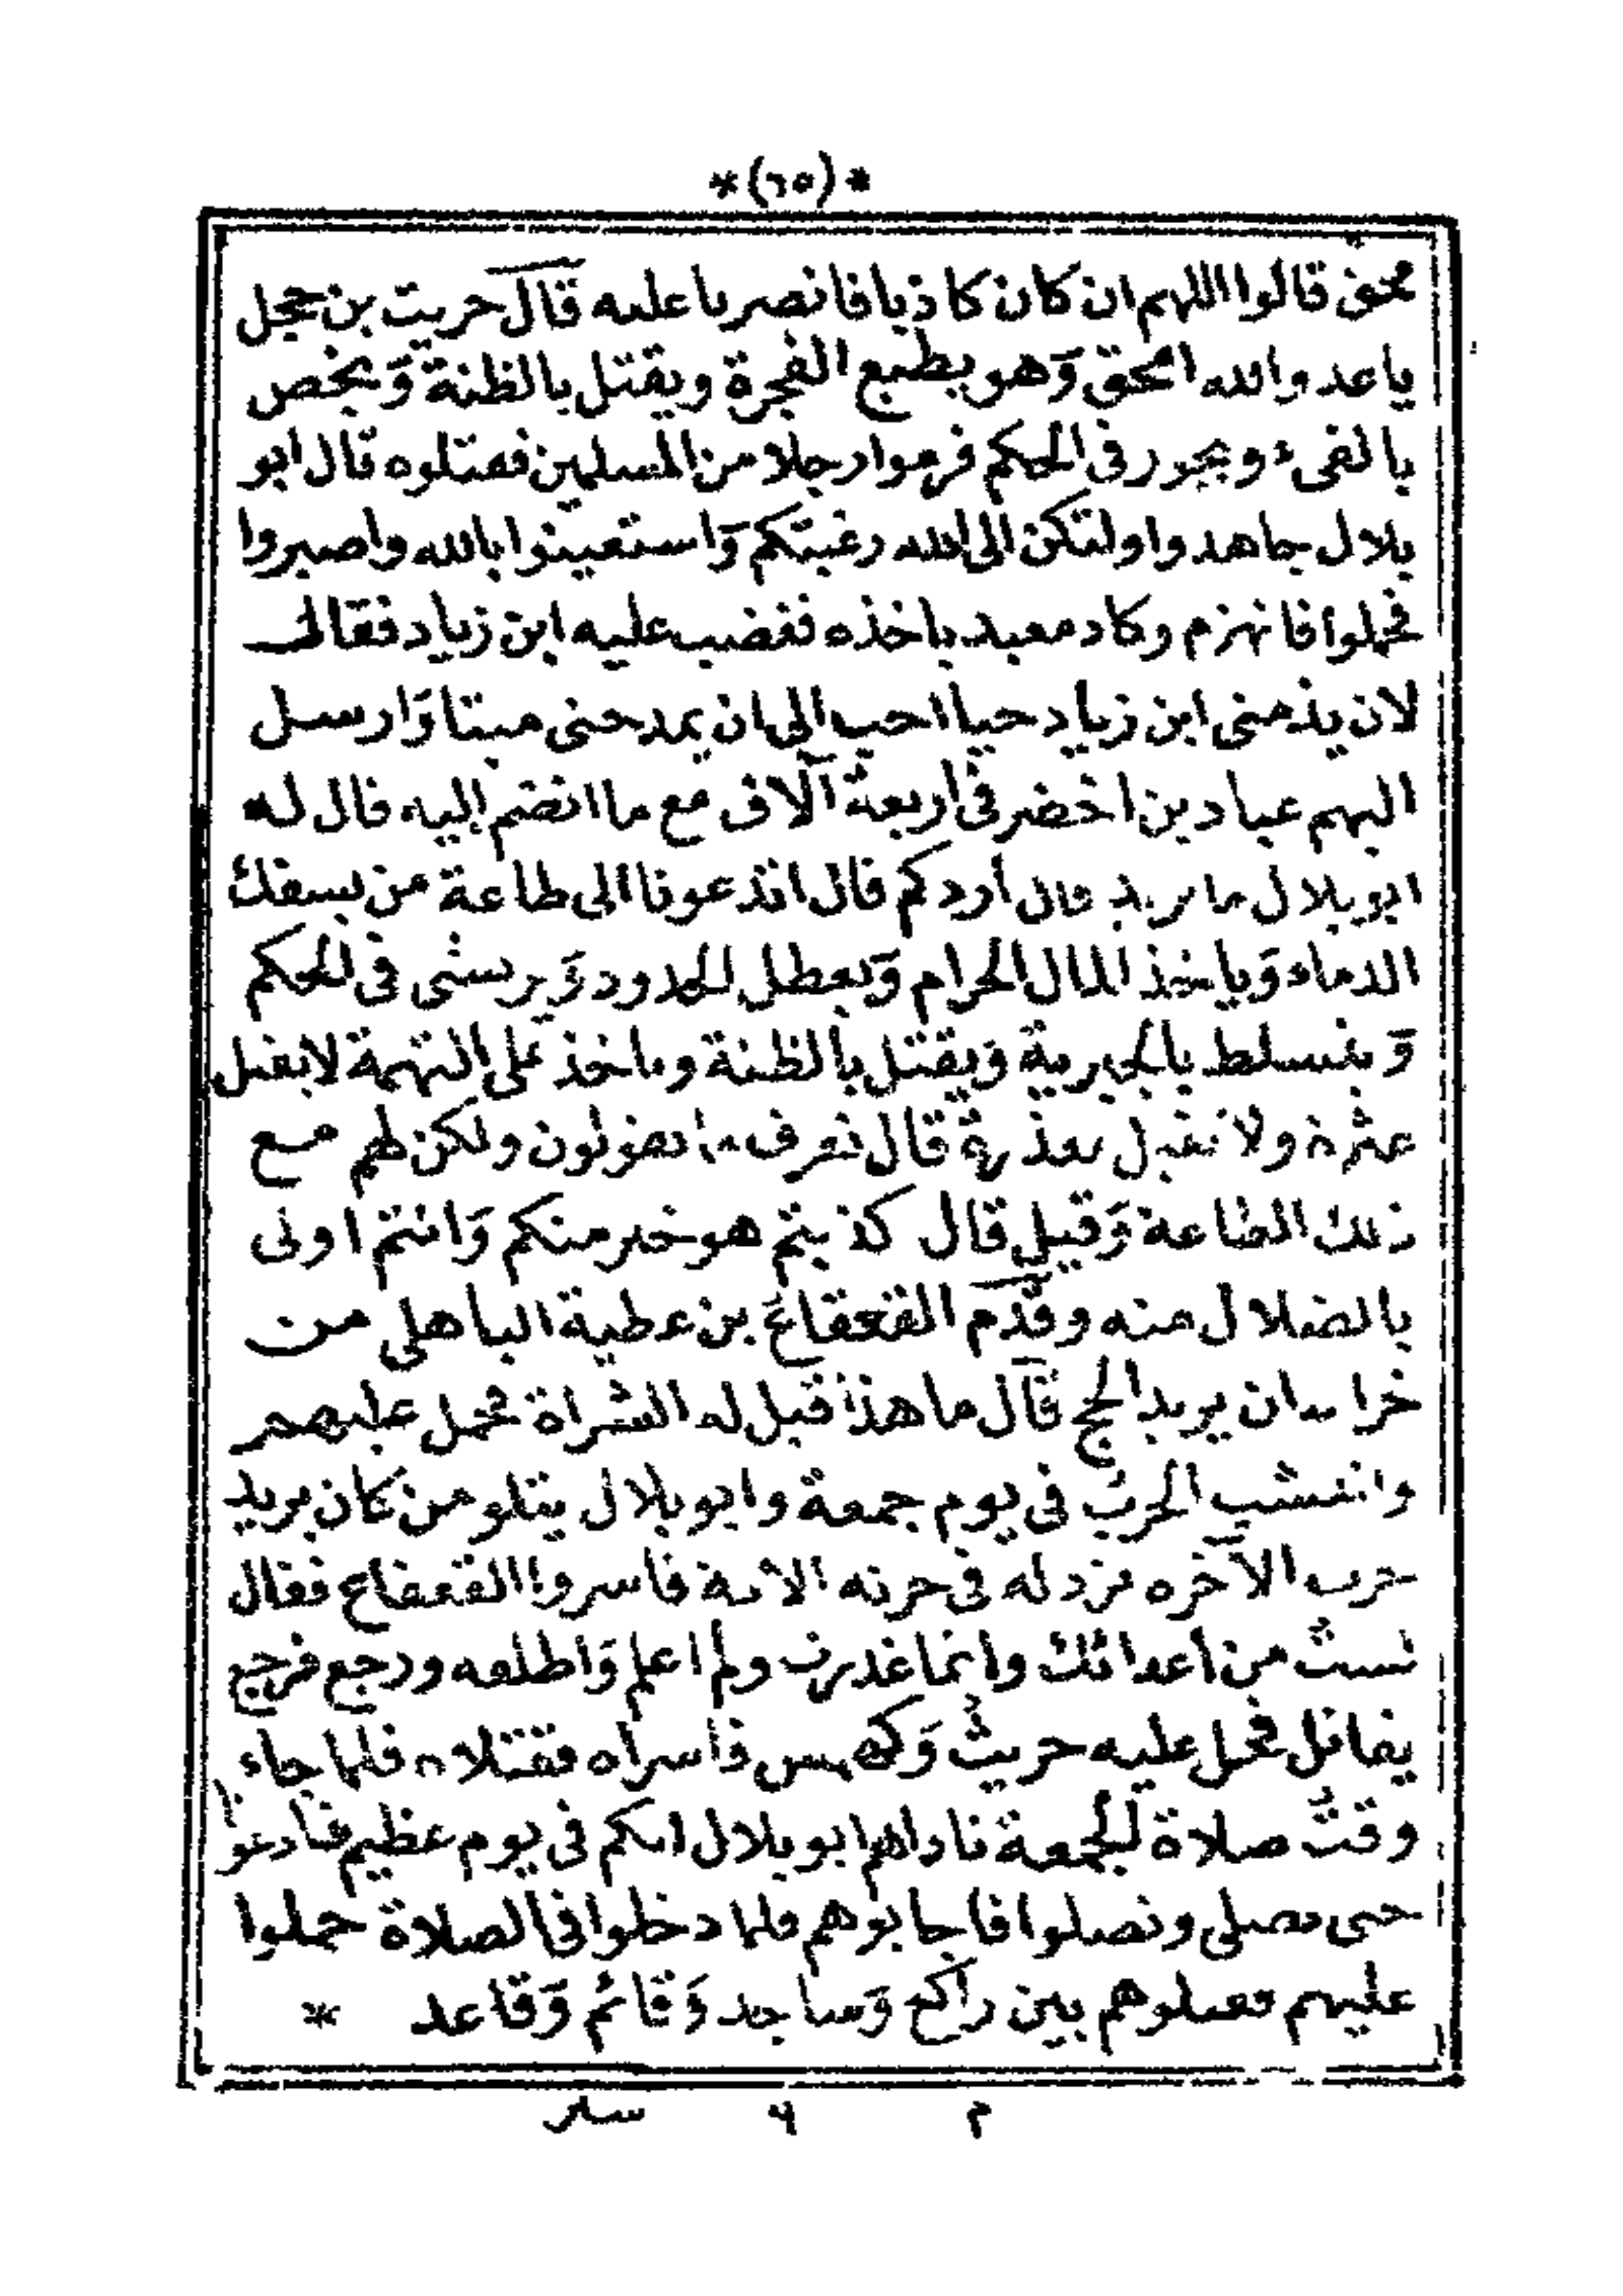 *(٦٥)*
محق قالوا اللهم ان كان كاذبا فانصرنا عليه قال حريث بن حجل
ياعدو الله امحق وَهو يطيع الفجرة ويقتل بالظنة وَيخص
بالفىء ويجور فى الحكم فرموا رجلا من المسلمين فقتلوه قال ابو
بلال جاهدوا ولتكن الى الله رغبتكم وَاستعينوا بالله واصبروا
فحملوا فانهزم وكاد معبد ياخذه فغضب عليه ابن زياد فقال
لان يذمنى ابن زياد حيا احب الى ان يمدحنى ميتا وَارسل
اليهم عباد بن اخضر فى اربعة آلاف مع ما انضم اليه قال له
ابو بلال ما تريد قال اردكم قال اتدعونا الى طاعة من يسفك
الدماء وَياخذ المال الحرام وَيعطل الحدود وَيرتشى فى الحكم
وَيتسلط بالجبرية وَيقتل بالظنة وياخذ على التهمة لا يقيل
عثرة ولا يقبل معذرة قال نعرف ما تقولون ولكن لهم مع
ذلك الطاعة وَقيل قال كذبتم هو خير منكم وَانتم اولى
بالضلال منه وقدم القعقاع بن عطية الباهلى من
خراسان يريد الحج قال ما هذا قيل له الشراة فحمل عليهم
وانتشب الحرب فى يوم جمعة وابو بلال يتلو من كان يريد
حرث الآخرة نزد له فى حرثه الاية فاسروا القعقاع فقال
لست من اعدائك وانما غدرت ولم اعلم وَاطلقه ورجع فرجع
يقاتل فحمل عليه حريث وَكهمس فاسراه فقتلاه فلما جاء
وقت صلاة الجمعة ناداهم ابو بلال انكم فى يوم عظيم فادعوا
حتى نصلى وتصلوا فاجابوهم فلما دخلوا فى الصلاة حملوا
عليهم فقتلوهم بين راكع وَساجد وَقائم وَقاعد *
م ٩ سير